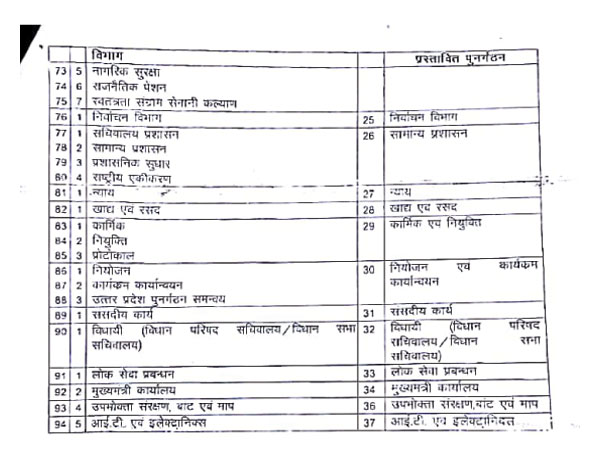 विभाग प्रस्तावित पुनर्गठन
73 5 नागरिक सुरक्षा
74 6 राजनैतिक पेंशन
75 7 स्वतंत्रता संग्राम सेनानी कल्याण
76 1 निर्वाचन विभाग 25 निर्वाचन विभाग
77 1 सचिवालय प्रशासन 26 सामान्य प्रशासन
78 2 सामान्य प्रशासन
79 3 प्रशासनिक सुधार
80 4 राष्ट्रीय एकीकरण
81 1 न्याय 27 न्याय
82 1 खाद्य एवं रसद 28 खाद्य एवं रसद
83 1 कार्मिक 29 कार्मिक एवं नियुक्ति
84 2 नियुक्ति
85 3 प्रोटोकाल
86 1 नियोजन 30 नियोजन एवं कार्यकम
87 2 कार्यकम कार्यान्वयन कार्यान्वयन
88 3 उत्तर प्रदेश पुनर्गठन समन्वय
89 1 संसदीय कार्य 31 संसदीय कार्य
90 1 विधायी (विधान परिषद सचिवालय/विधान सभा 32 विधायी (विधान परिषद
सचिवालय) सचिवालय/विधान सभा
सचिवालय)
91 1 लोक सेवा प्रबन्धन 33 लोक सेवा प्रबन्धन
92 2 मुख्यमंत्री कार्यालय 34 मुख्यमंत्री कार्यालय
93 4 उपभोक्ता संरक्षण, बाट एवं माप 36 उपभोक्ता संरक्षण,बांट एवं माप
94 5 आई.टी. एवं इलेक्ट्रानिक्स 37 आई.टी. एवं इलेक्ट्रानिक्स